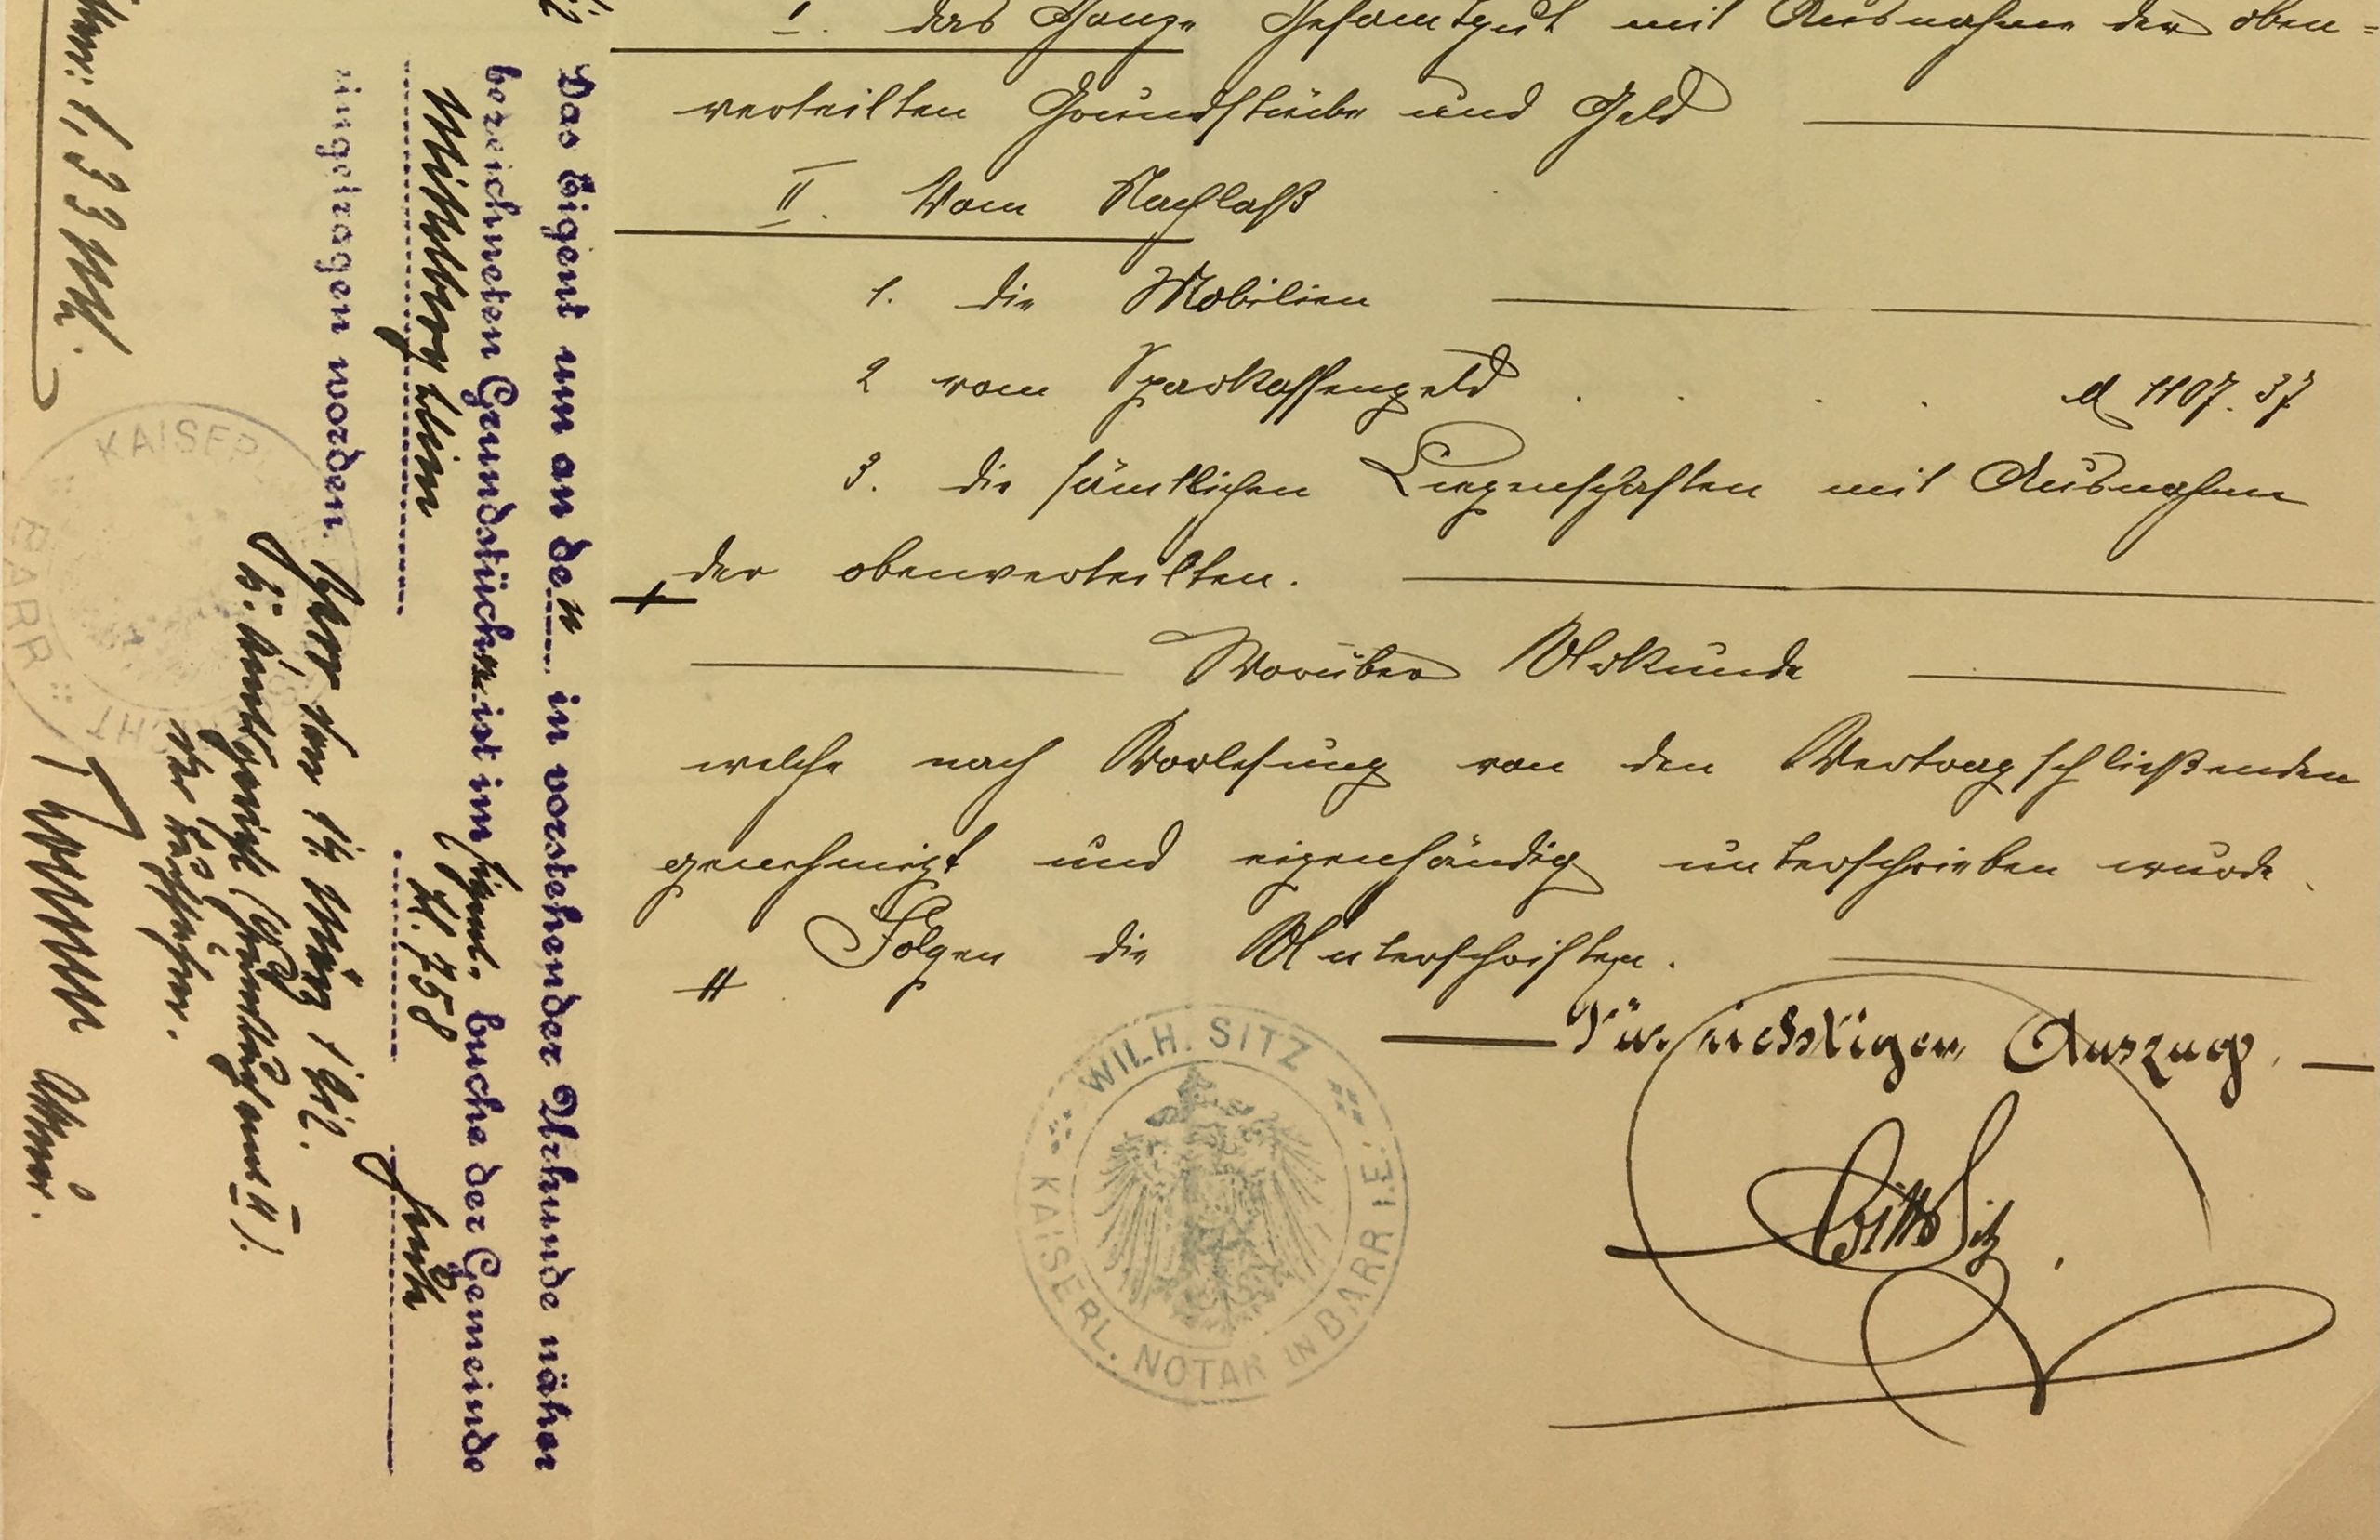 I. das Ganze Gesamtgut mit Ausnahme der oben=
verteilten Grundstücke und Geld
II. Vom Nachlaß
1. die Mobilien
2 vom Sparkassengeld . . . . M 1107.37
3. die sämtlichen Liegenschaften mit Ausnahme
der obenverteilten.
Worüber Urkunde
welche nach Vorlesung von den Vertragschließenden
genehmigt und eigenhändig unterschrieben wurde.
Folgen die Unterschriften.
Für richtigen Auszug.
Sitz
WILH. SITZ
KAISERL. NOTAR IN BARR I.E.
Das Eigentum an den in vorstehender Urkunde näher
bezeichneten Grundstücken ist im Eigent. buche der Gemeinde
Mittelbergheim Bl. 758
eingetragen worden.
Barr den 14 März 191
K. Amtsgericht (Grundbuchamt II).
Der
1,33 Mk.
KAISERL.
BARR